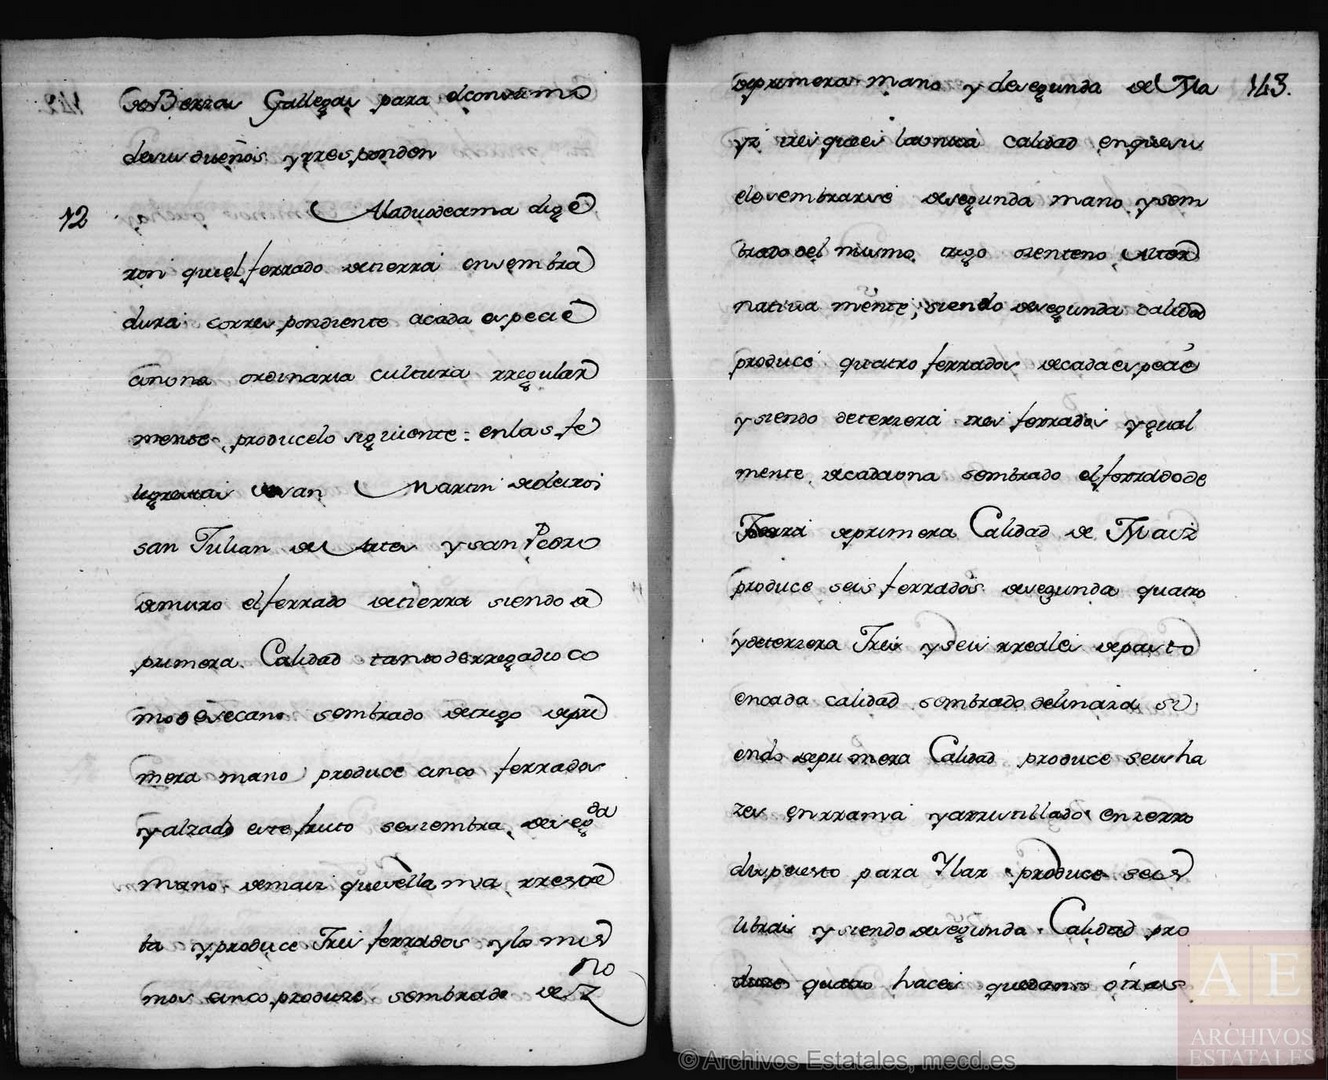 de Berzas Gallegas para el consumo
de sus dueños y rresponden
12 A la duodecima dige
ron que el ferrado de tierra en sembra
dura correspondiente a cada especie
con una ordinaria cultura rregular
mente, produce lo siguiente: en las fe
ligresias de san Martin de
san Julian de Artes y san Pedro
de muro el ferrado de tierra siendo de
primera Calidad tanto de rregadio co
mo de secano sembrado de trigo de pri
mera mano produce cinco ferrados
y alzado este fruto se siembra de segda
mano de maiz que se llama rrestre
ba y produce Tres ferrados y lo mis
mos cinco produze sembrado de Zno
de primera mano y de segunda de Ma 143.
yz tres que es la unica calidad en que su
ele sembrarse de segunda mano y sem
brado del mismo trigo o zenteno alter
nativa mente, siendo de segunda calidad
produce quatro ferrados de cada especie
y siendo de terzera tres ferrados y gual
mente de cada una sembrado el ferrado de
Tierra de primera Calidad de Maiz
produce seis ferrados de segunda quatro
y de terzera Tres y seis rreales de pasto
en cada calidad sembrado de linaza si
endo de primera Calidad produce seis ha
zes en rrama y arrustillado en zerro
dispuesto para Ylar produce seis
libras y siendo de segunda Calidad pro
duze quatro haces quedando otras
© Archivos Estatales, mecd.es
AE
ARCHIVOS
ESTATALES